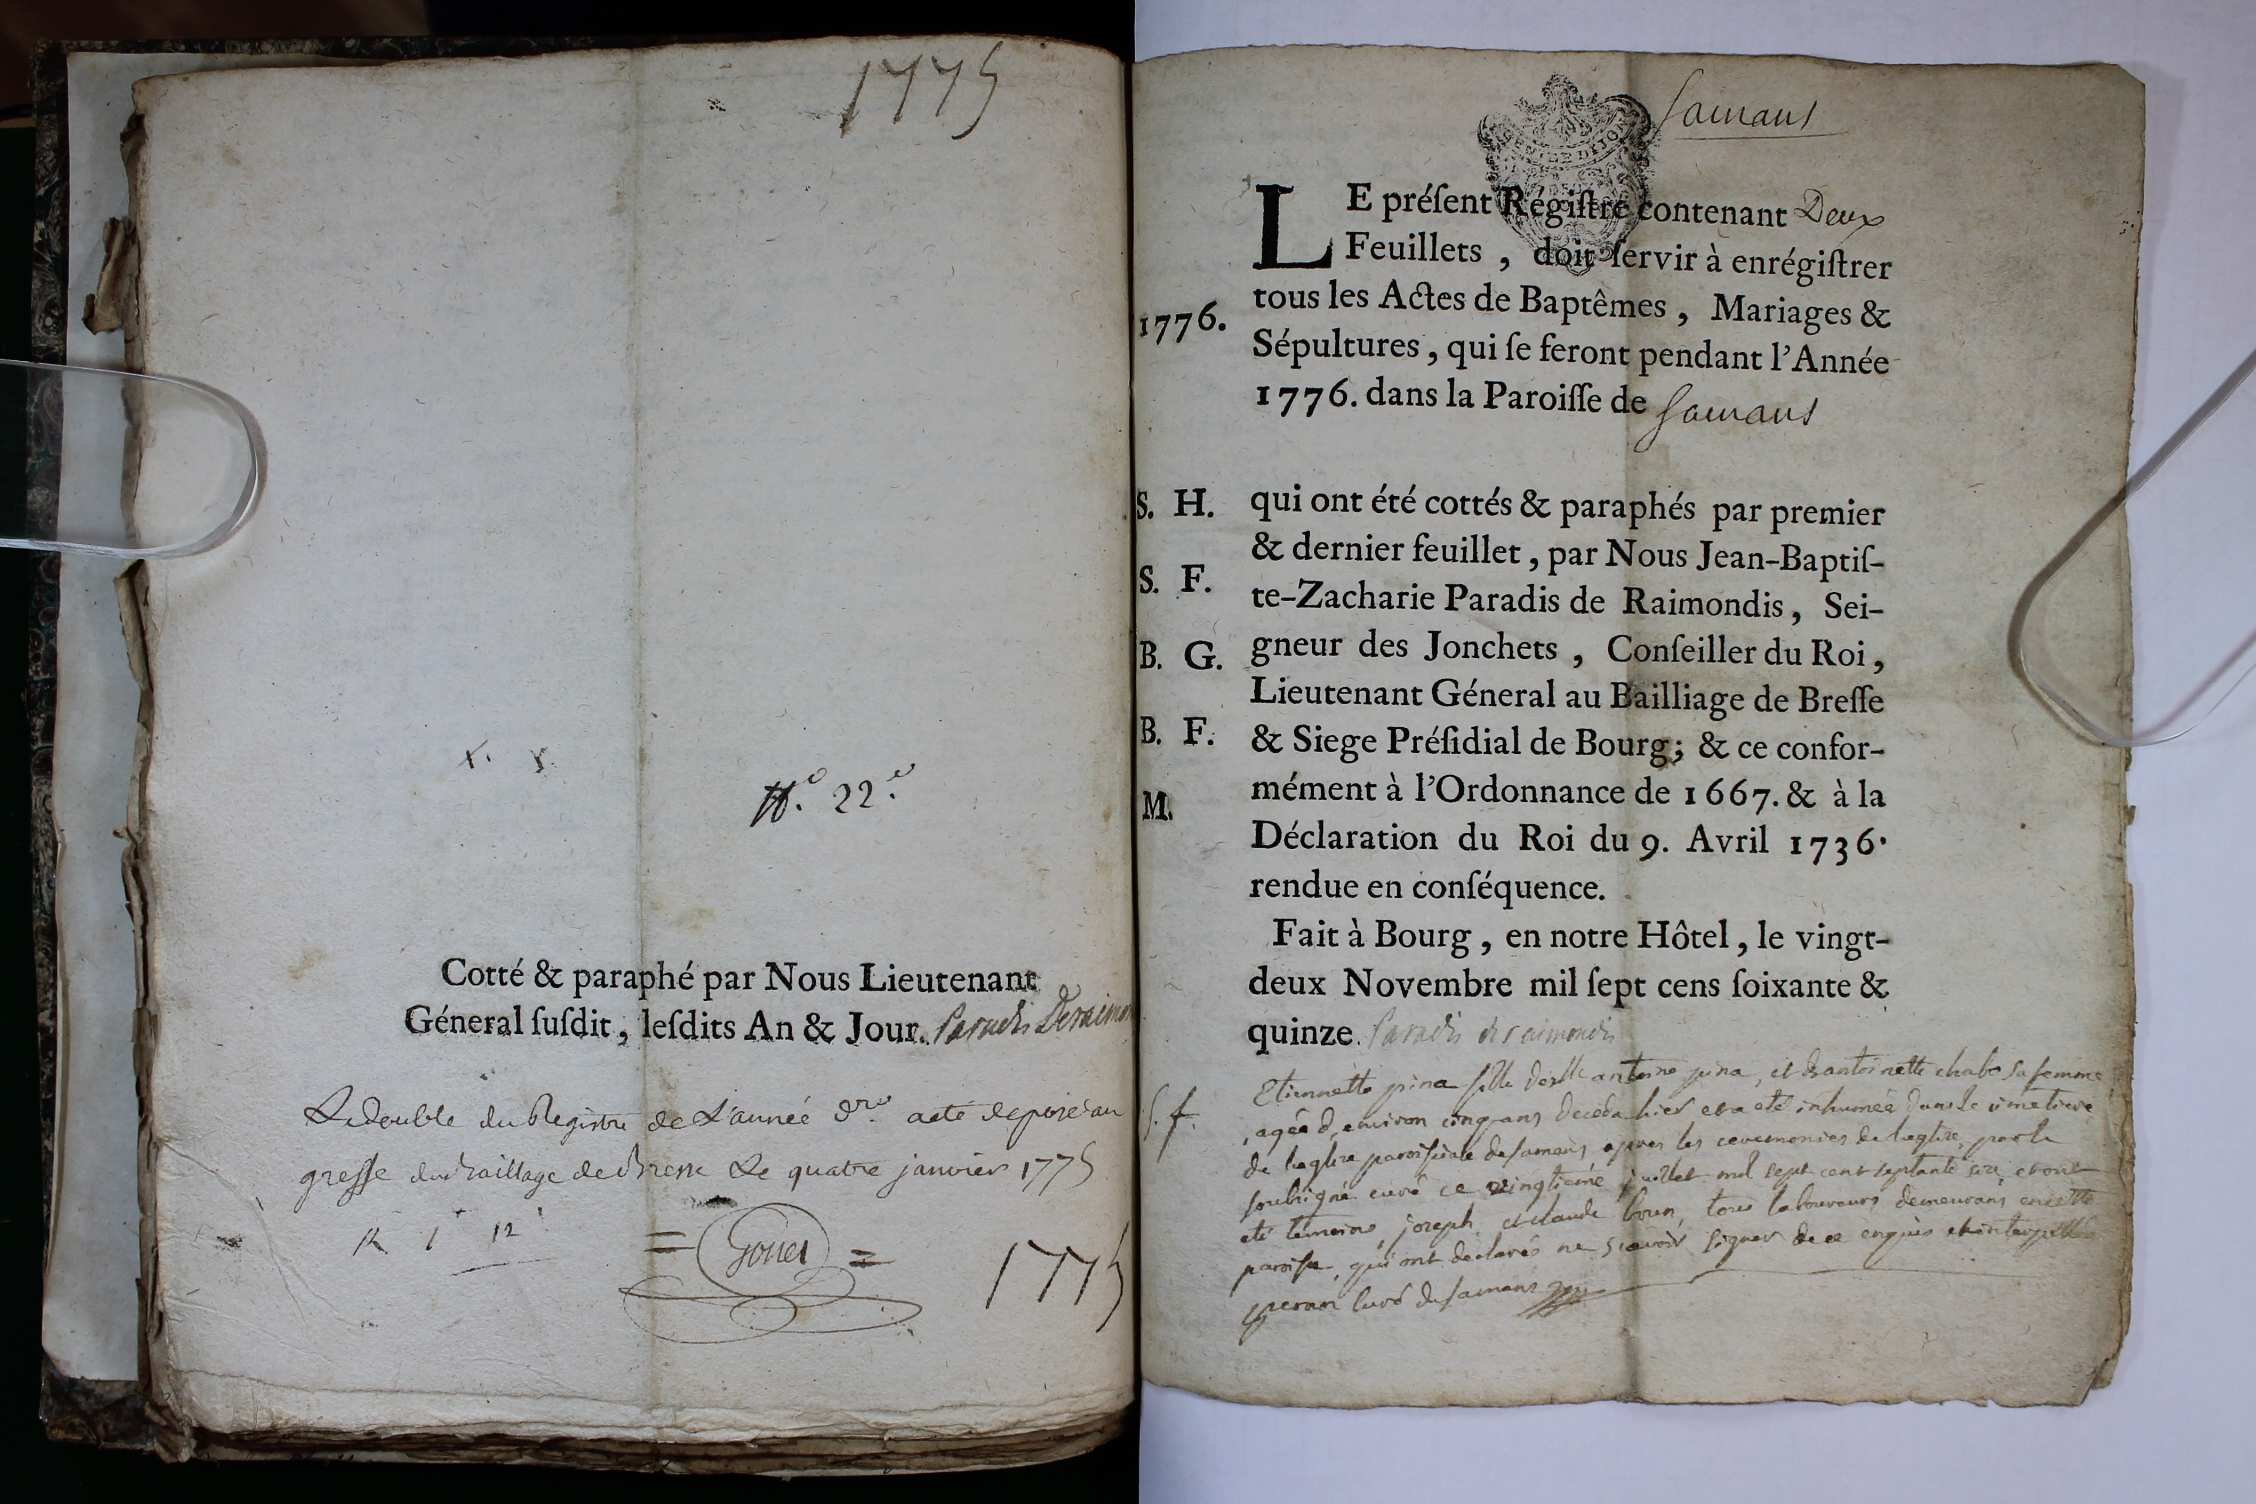 1775
N.o 22.e
Cotté & paraphé par Nous Lieutenant
Géneral ſuſdit, leſdits An & Jour. Paradis Deraimon
Le double du Registre de L'année d.re a eté deposé au
greffe du Bailliage de Bresse Le quatre janvier 1775
R 1 12
= Gouet =
1775
Samans
LE préſent Régiſtre contenant Deux
Feuillets, doit ſervir à enrégiſtrer
tous les Actes de Baptêmes, Mariages &
1776.
Sépultures, qui ſe feront pendant l'Année
1776. dans la Paroiſſe de Samans
S. H.
qui ont été cottés & paraphés par premier
& dernier feuillet, par Nous Jean-Baptiſ-
S. F.
te-Zacharie Paradis de Raimondis, Sei-
B. G.
gneur des Jonchets, Conſeiller du Roi,
Lieutenant Géneral au Bailliage de Breſſe
B. F.
& Siege Préſidial de Bourg; & ce confor-
M.
mément à l'Ordonnance de 1667. & à la
Déclaration du Roi du 9. Avril 1736.
rendue en conſéquence.
Fait à Bourg, en notre Hôtel, le vingt-
deux Novembre mil ſept cens ſoixante &
quinze. Paradis de raimondis
Etiennette pina fille antoine pina, et antoinette chabo sa femme
S. f.
, agée d'environ cinq ans deceda hier et a eté inhumée dans le cimetiere
de l'eglise paroissiale de samans apres les ceremonies de l'eglise, par le
soubsigné curé ce vingtieme juillet mil sept cent septante six, et ont
eté temoins, joseph, et claude brun, tous laboureurs demeurans en cette
paroisse, qui ont declarés ne scavoir signer de ce enquis et interpellés
curé de samans